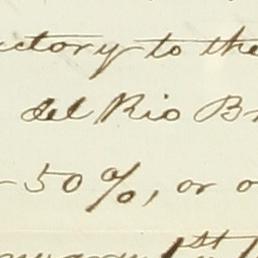 ctory to the
del Rio B
-50%, or o